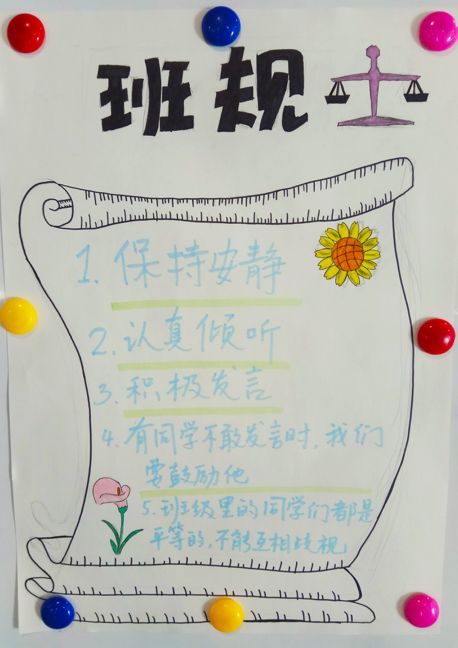 班规
1. 保持安静
2. 认真倾听
3. 积极发言
4. 有同学不敢发言时，我们
要鼓励他
5. 班级里的同学们都是
平等的，不能互相歧视